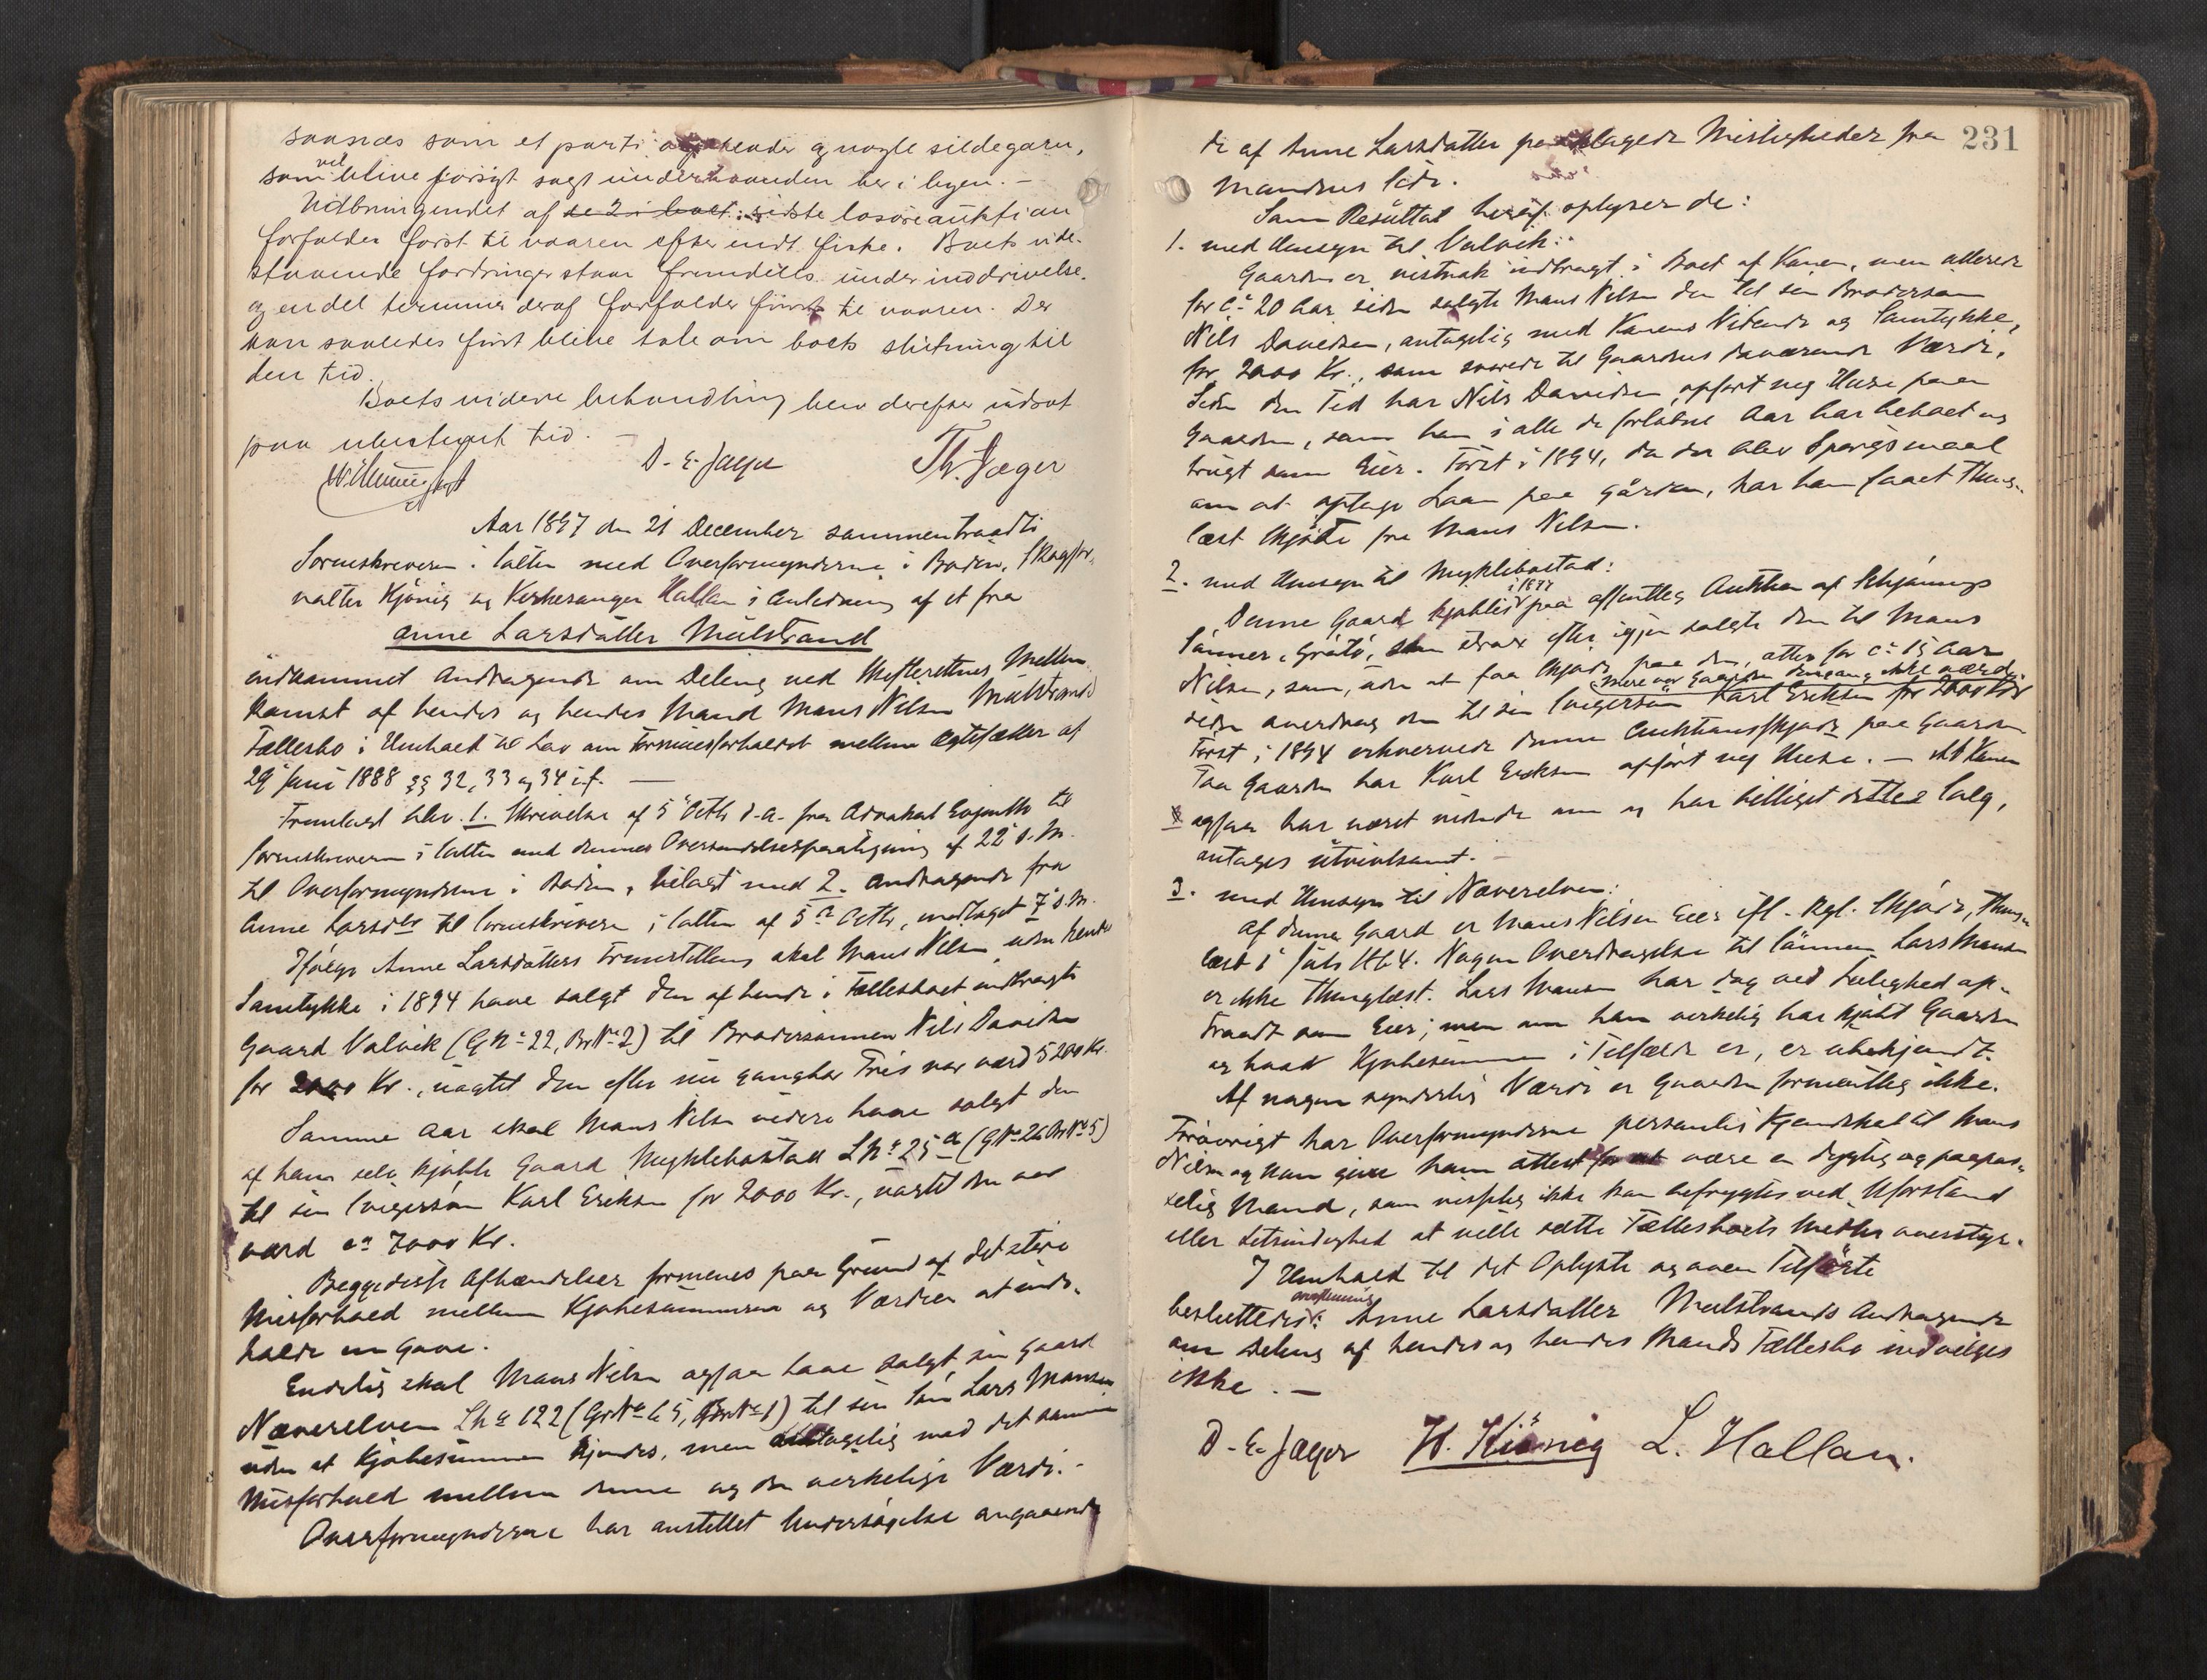 saanæs som et parti og nogle sildegarn,
som vel blive forsøgt solgt underhaanden her i byen. –
Udbringendet af de 2 i boet sidste løsøreauktion
forfalder først til vaaren efter endt fiske. Boets ude-
staaende fordringer staar fremdeles under inddrivelse.
og endel terminer deraf forfalder først til vaaren. Der
kan saaledes først blive tale om boets slutning til
den tid.
Boets videre behandling blev derefter udsat
paa ubestemt tid. –
D. E. Jæger Th. Jæger
Aar 1897 den 21 December sammentraadte
Sorenskriveren i Salten med Overformynderne i Bodin, Skogfor-
valter Kjønig og Kirkesanger Hallan i Anledning af et fra
Anne Larsdatter Mulstrand
indkommet Andragende om Deling ved Skifterettens Mellem-
komst af hendes og hendes Mand Mons Nilsen Mulstrands
Fællesbo i Henhold til Lov om Formuesforholdet mellem Ægtefæller af
29 Juni 1888 §§ 32, 33 og 34 i.f. —
Fremlagt blev 1. Skrivelse af 5 Octbr d.A. fra Advokat to
Sorenskriveren i Salten med dennes Oversendelsespaategning af 22 s.M.
til Overformynderne i Bodin, bilagt med 2. Andragende fra
Anne Larsdtr til Sorenskriveren i Salten af 5te Octbr, modtaget 7 s.M.
Ifølge Anne Larsdatters Fremstilling skal Mons Nilsen uden hendes
Samtykke i 1894 have solgt den af hende i Fællesboet indbragte
Gaard Valvik (G.No 22, Br.No 2) til Brodersønnen Nils Davidsen
for 2000 Kr., uagtet den efter nu gangbar Pris var værd 5200 Kr.
Samme Aar skal Mons Nilsen videre have solgt den
af ham selv kjøbte Gaard Myklebostad LNo 25 a (GNo 26 BrNo 5)
til sin Svigersøn Karl Eriksen for 2000 Kr., uagtet den var
værd ca 7000 Kr.
Begge disse Afhændelser formenes paa Grund af det store
Misforhold mellem Kjøbesummerne og Værdien at inde-
holde en Gave.
Endelig skal Mons Nilsen ogsaa have solgt sin Gaard
Næverelven LNo 122 (GNo 65, BrNo 1) til sin Søn Lars Monsen
uden at Kjøbesummen kjendes, men antagelig med det samme
Misforhold mellem denne og den virkelige Værdi. –
Overformynderne har anstillet Undersøgelse angaaende
231
de af Anne Larsdatter paaklagede Misligheder fra
Mandens Side.
Som Resultat heraf oplyser de:
1. med Hensyn til Valvik:
Gaarden er vistnok indbragt i Boet af Konen, men allerede
for ca 20 Aar siden solgte Mons Nilsen den til sin Brodersøn
Nils Davidsen, antagelig med Konens Vidende og Samtykke,
for 2000 Kr., som svarede til Gaardens daværende Værdi.
Siden den Tid har Nils Davidsen opført nye Huse paa
Gaarden, som han i alle de forløbne Aar har beboet og
brugt som Eier. Først i 1894, da der blev Spørgsmaal
om at optage Laan paa Gården, har han faaet thing-
læst Skjøde fra Mons Nilsen.
2. med Hensyn til Myklebostad:
Denne Gaard kjøbtes i 1877 paa offentlig Auktion af Khjønings
Sønner, Gråtø, som strax efter igjen solgte den til Mons
Nilsen, som, uden at faa Skjøde paa den, atter for ca 15 Aar
(mere var Gaarden dengang ikke værd)
siden overdrog den til sin Svigersøn Karl Eriksen for 2000 Kr
Først i 1894 erhvervede denne Auktionsskjøde paa Gaarden
Paa Gaarden har Karl Eriksen opført nye Huse. – At Konen
ogsaa har været vidende om og har billiget dette Salg,
antages utvivlsomt. –
3. med Hensyn til Næverelven:
Af denne Gaard er Mons Nilsen Eier ifl. Kgl. Skjøde, thing-
læst i Juli 1864. Nogen Overdragelse til Sønnen Lars Monsen
er ikke thinglæst. Lars Monsen har dog ved Leilighed op-
traadt som Eier; men om han virkelig har kjøbt Gaarden
og hvad Kjøbesummen i Tilfælde er, er ubekjendt.
Af nogen synderlig Værdi er Gaarden formentlig ikke.
Forøvrigt har Overformynderne personlig Kjendskab til Mons
Nilsen og kan give ham Attest for at være en dygtig og paapas-
selig Mand, som visselig ikke kan befrygtes ved Uforstand
eller Letsindighed at ville sætte Fællesboets Midler overstyr.
I Henhold til det Oplyste og ovenfor Tilførte
besluttedes enstemmig: Anne Larsdatter Mulstrands Andragende
om Deling af hendes og hendes Mands Fællesbo indvilges
ikke. —
D. E. Jæger H. Kiønig L. Hallan.